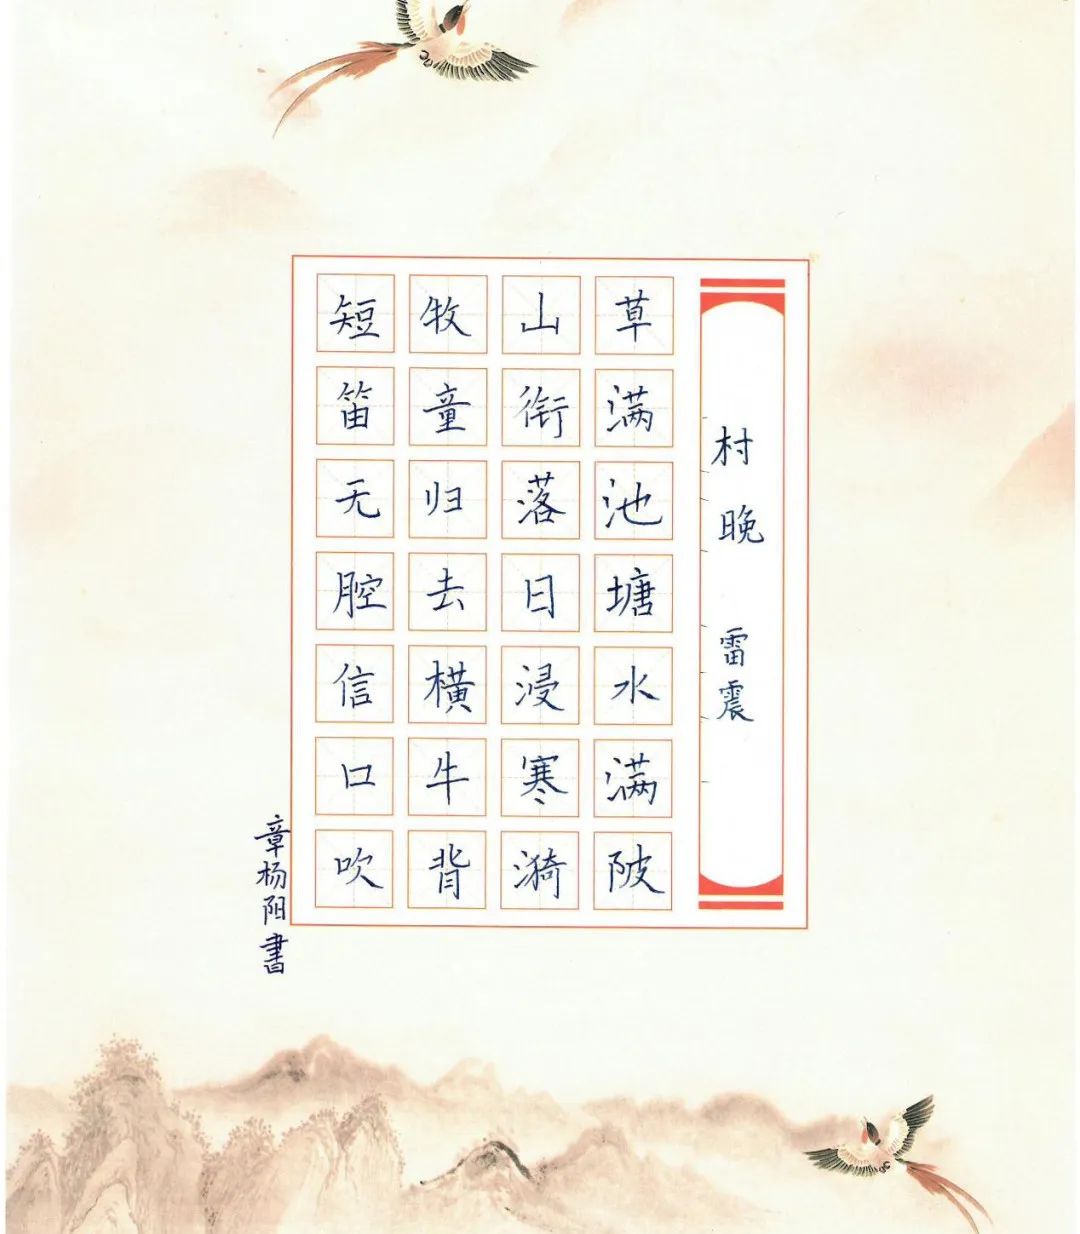 村晚 雷震
草满池塘水满陂
山衔落日浸寒漪
牧童归去横牛背
短笛无腔信口吹
章杨阳書